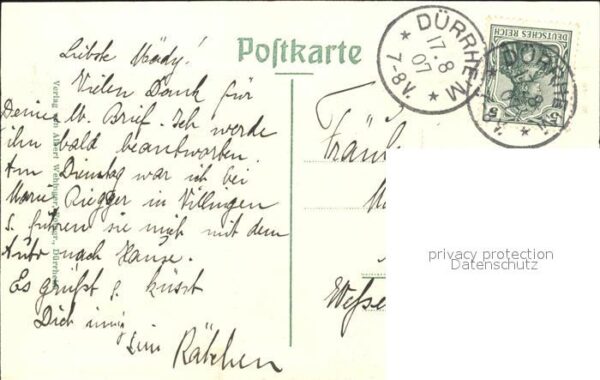 Postkarte
Liebste Mädy!
Vielen Dank für
Deinen lb. Brief. Ich werde
ihn bald beantworten.
Am Dienstag war ich bei
Marie Riegger in Villingen
führen sie mich mit dem
Auto nach Hause.
Es grüßt & küsst
Dich innig
Dein Räbchen
Verlag von Albert
DÜRRHEIM
17.8
07
7-8V.
DEUTSCHES REICH
5
Fräul
privacy protection
Datenschutz